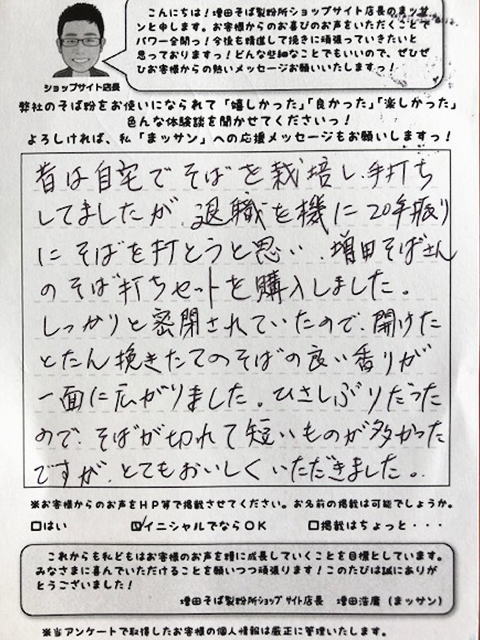 こんにちは！増田そば製粉所ショップサイト店長のまッサ
ンと申します。お客様からのお喜びのお声をいただくことで
パワー全開っ！今後も精進して挽きに頑張っていきたいと
思っておりますっ！どんな些細なことでもいいので、ぜひぜ
ひお客様からの熱いメッセージお願いいたしますっ！
ショップサイト店長
弊社のそば粉をお使いになられて「嬉しかった」「良かった」「楽しかった」
色んな体験談を聞かせてくださいっ！
よろしければ、私「まッサン」への応援メッセージもお願いしますっ！
昔は自宅でそばを栽培し、手打ち
してましたが、退職を機に20年振り
にそばを打とうと思い、増田そばさん
のそば打ちセットを購入しました。
しっかりと密閉されていたので、開けた
とたん挽きたてのそばの良い香りが
一面に広がりました。ひさしぶりだった
ので、そばが切れて短いものが多かった
ですが、とてもおいしくいただきました。
※お客様からのお声をＨＰ等で掲載させてください。お名前の掲載は可能でしょうか。
□はい ☑イニシャルでならＯＫ □掲載はちょっと・・・
これからも私どもはお客様のお声を糧に成長していくことを目標としています。
みなさまに喜んでいただけることを願いつつ頑張ります！このたびは誠にありが
とうございました！
増田そば製粉所ショップサイト店長 増田浩庸（まッサン）
※当アンケートで取得したお客様の個人情報は厳正に管理いたします。